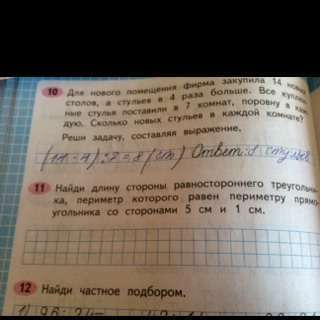 10 Для нового помещения фирма закупила 14 новых
столов, а стульев в 4 раза больше. Все куплен-
ные стулья поставили в 7 комнат, поровну в каж-
дую. Сколько новых стульев в каждой комнате?
Реши задачу, составляя выражение.
Ответ: 8
11 Найди длину стороны равностороннего треугольни-
ка, периметр которого равен периметру прямо-
угольника со сторонами 5 см и 1 см.
12 Найди частное подбором.